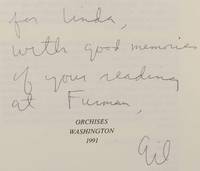 for Linda,
with good memories
of your reading
at Furman,
ORCHISES
WASHINGTON
1991
Gil